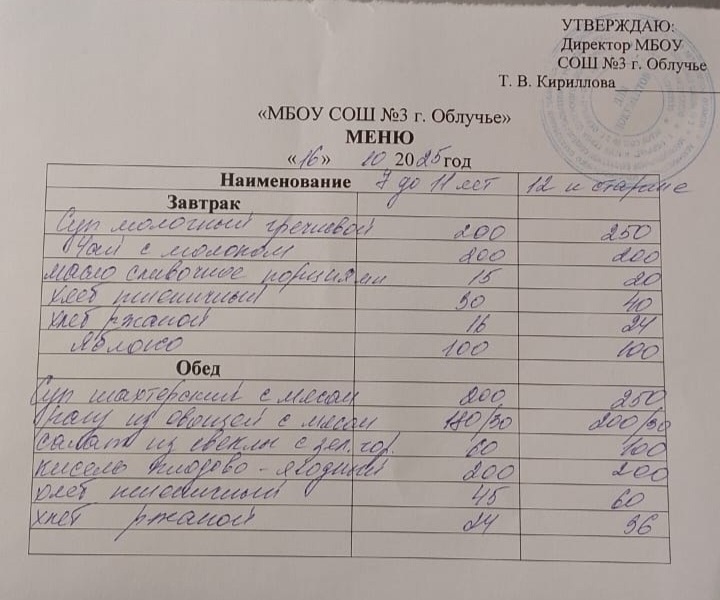 УТВЕРЖДАЮ:
Директор МБОУ
СОШ №3 г. Облучье
Т. В. Кириллова
«МБОУ СОШ №3 г. Облучье»
МЕНЮ
«16» 10 2025 год
Наименование 7 до 11 лет 12 и старше
Завтрак
Суп молочный гречневой 200 250
Чай с молоком 200 200
масло сливочное порциями 15 20
хлеб пшеничный 30 40
хлеб ржаной 16 24
Яблоко 100 100
Обед
Суп шахтерский с мясом 200 250
Рагу из овощей с мясом 180/30 200/30
салат из свеклы с зел. гор. 60 100
кисель плодово-ягодный 200 200
хлеб пшеничный 45 60
хлеб ржаной 24 36